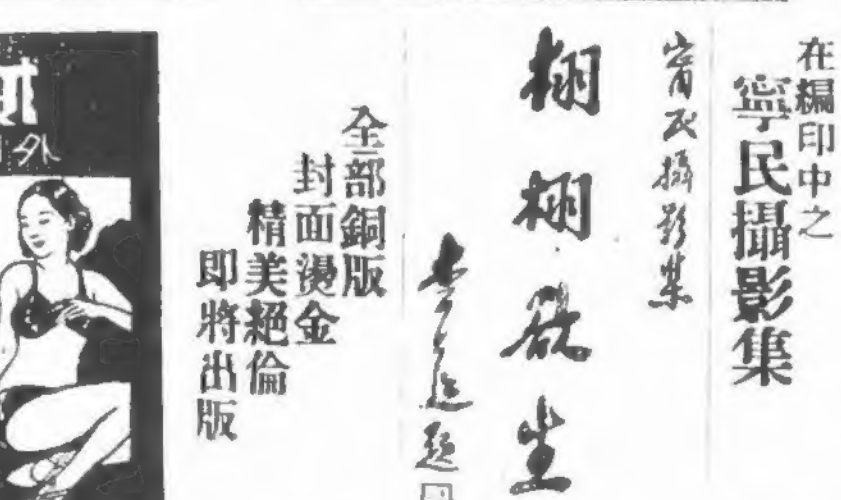 在編印中之
寧民攝影集
寧民攝影集
栩栩欲生
題
全部銅版
封面燙金
精美絕倫
即將出版
外